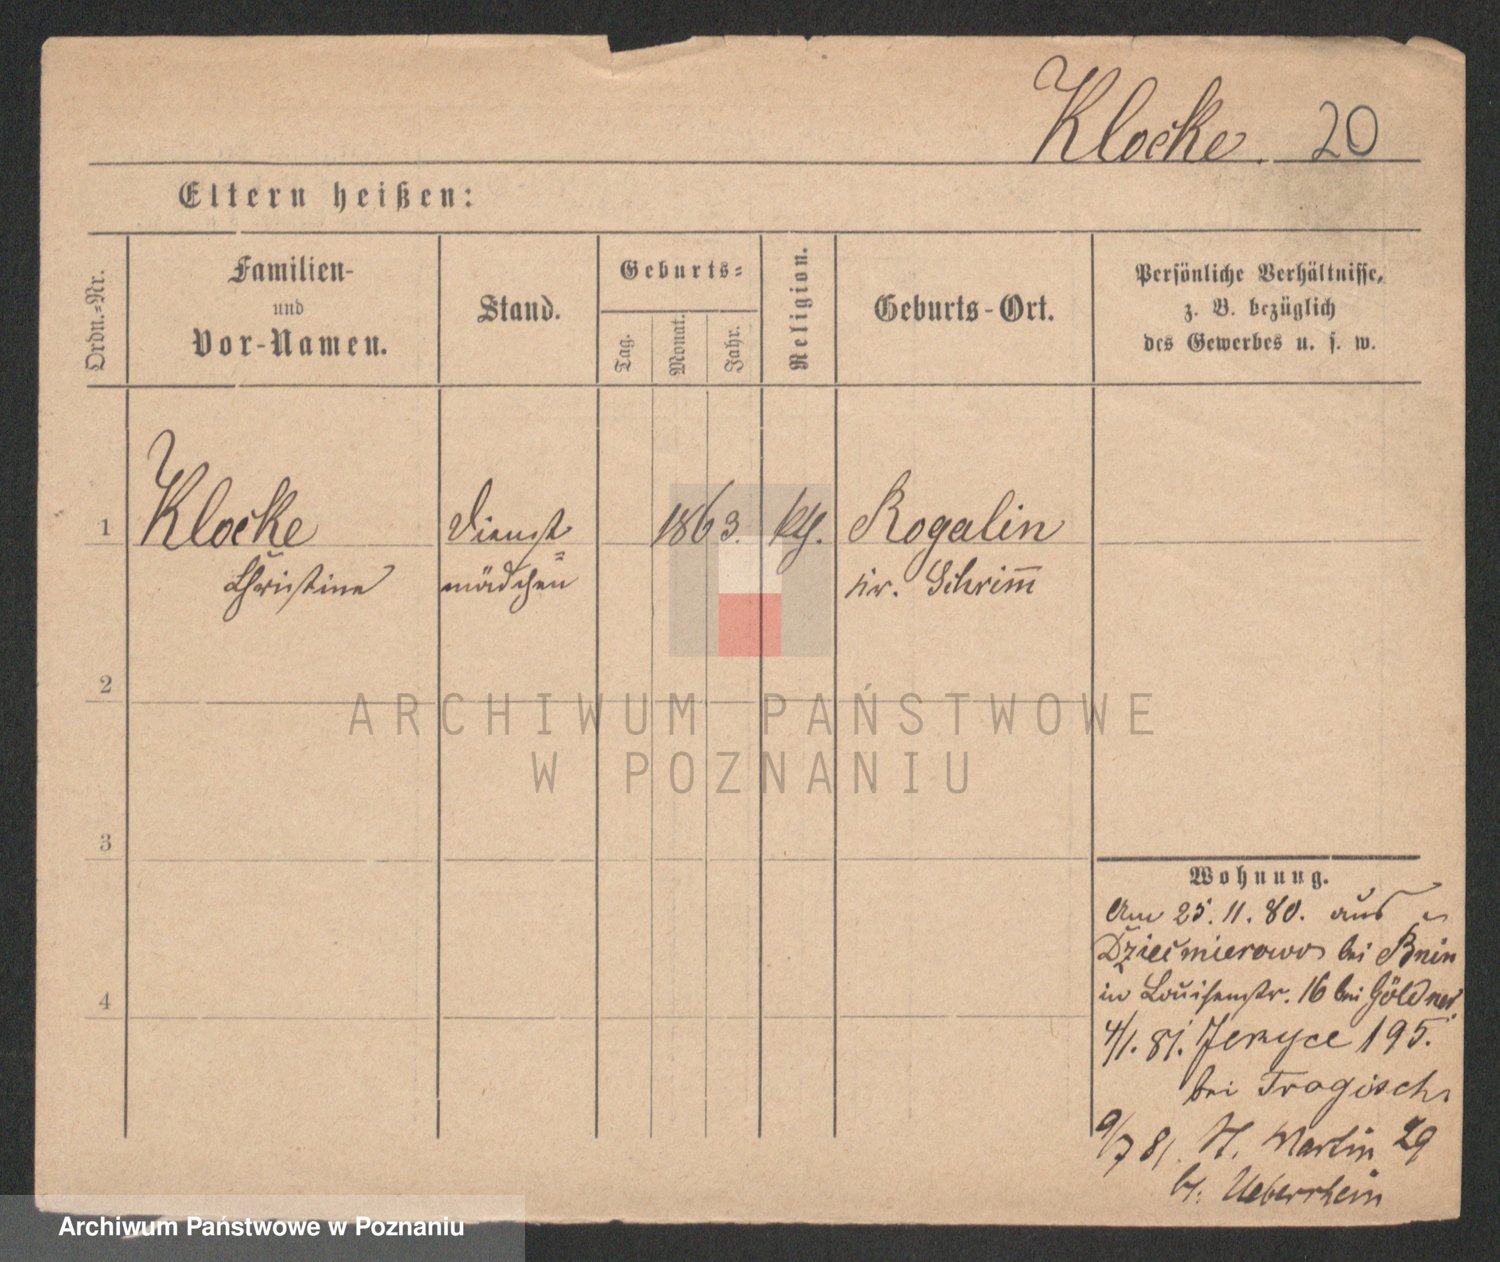 Klocke. 20
Eltern heißen:
Ordn.-Nr.
Familien-
und
Vor-Namen.
Stand.
Geburts-
Tag.
Monat.
Jahr.
Religion.
Geburts-Ort.
Persönliche Verhältnisse,
z. B. bezüglich
des Gewerbes u. s. w.
1 Klocke Dienst= 1863. kth. Rogalin
Christine mädchen Kr. Schrim̅
2
3
4
Wohnung.
Am 25. 11. 80. aus
Dziećmierowo bei Bnin
in Louisenstr. 16 bei Göldner
4/1. 81. Jerzyce 195.
bei Tragisch
9/7 81. St. Martin 29
b. Ueberrhein
ARCHIWUM PAŃSTWOWE
W POZNANIU
Archiwum Państwowe w Poznaniu